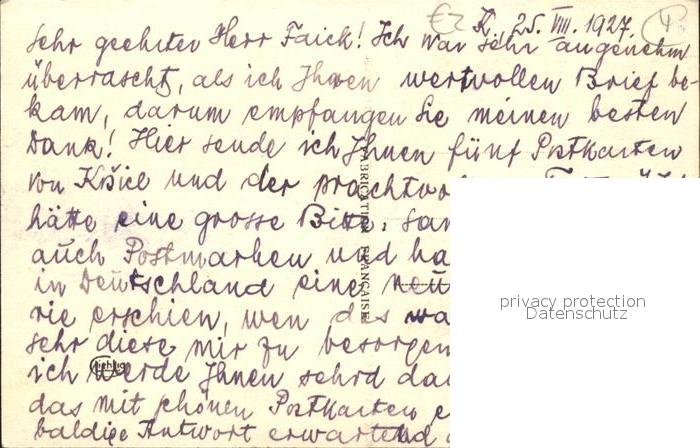 K. 25. VIII. 1927.
Sehr geehrter Herr Faick! Ich war sehr angenehm
überrascht, als ich Ihren wertvollen Brief be-
kam, darum empfangen Sie meinen besten
Dank! Hier sende ich Ihnen fünf Postkarten
von Košice und der
hätte eine grosse Bitte:
auch Postmarken und
in Deutschland eine
rie erschien, wen das
sehr diese mir zu besorgen
ich werde Ihnen sehrd
das mit schönen Postkarten
baldige Antwort erwartend
FABRICATION FRANÇAISE
privacy protection
Datenschutz